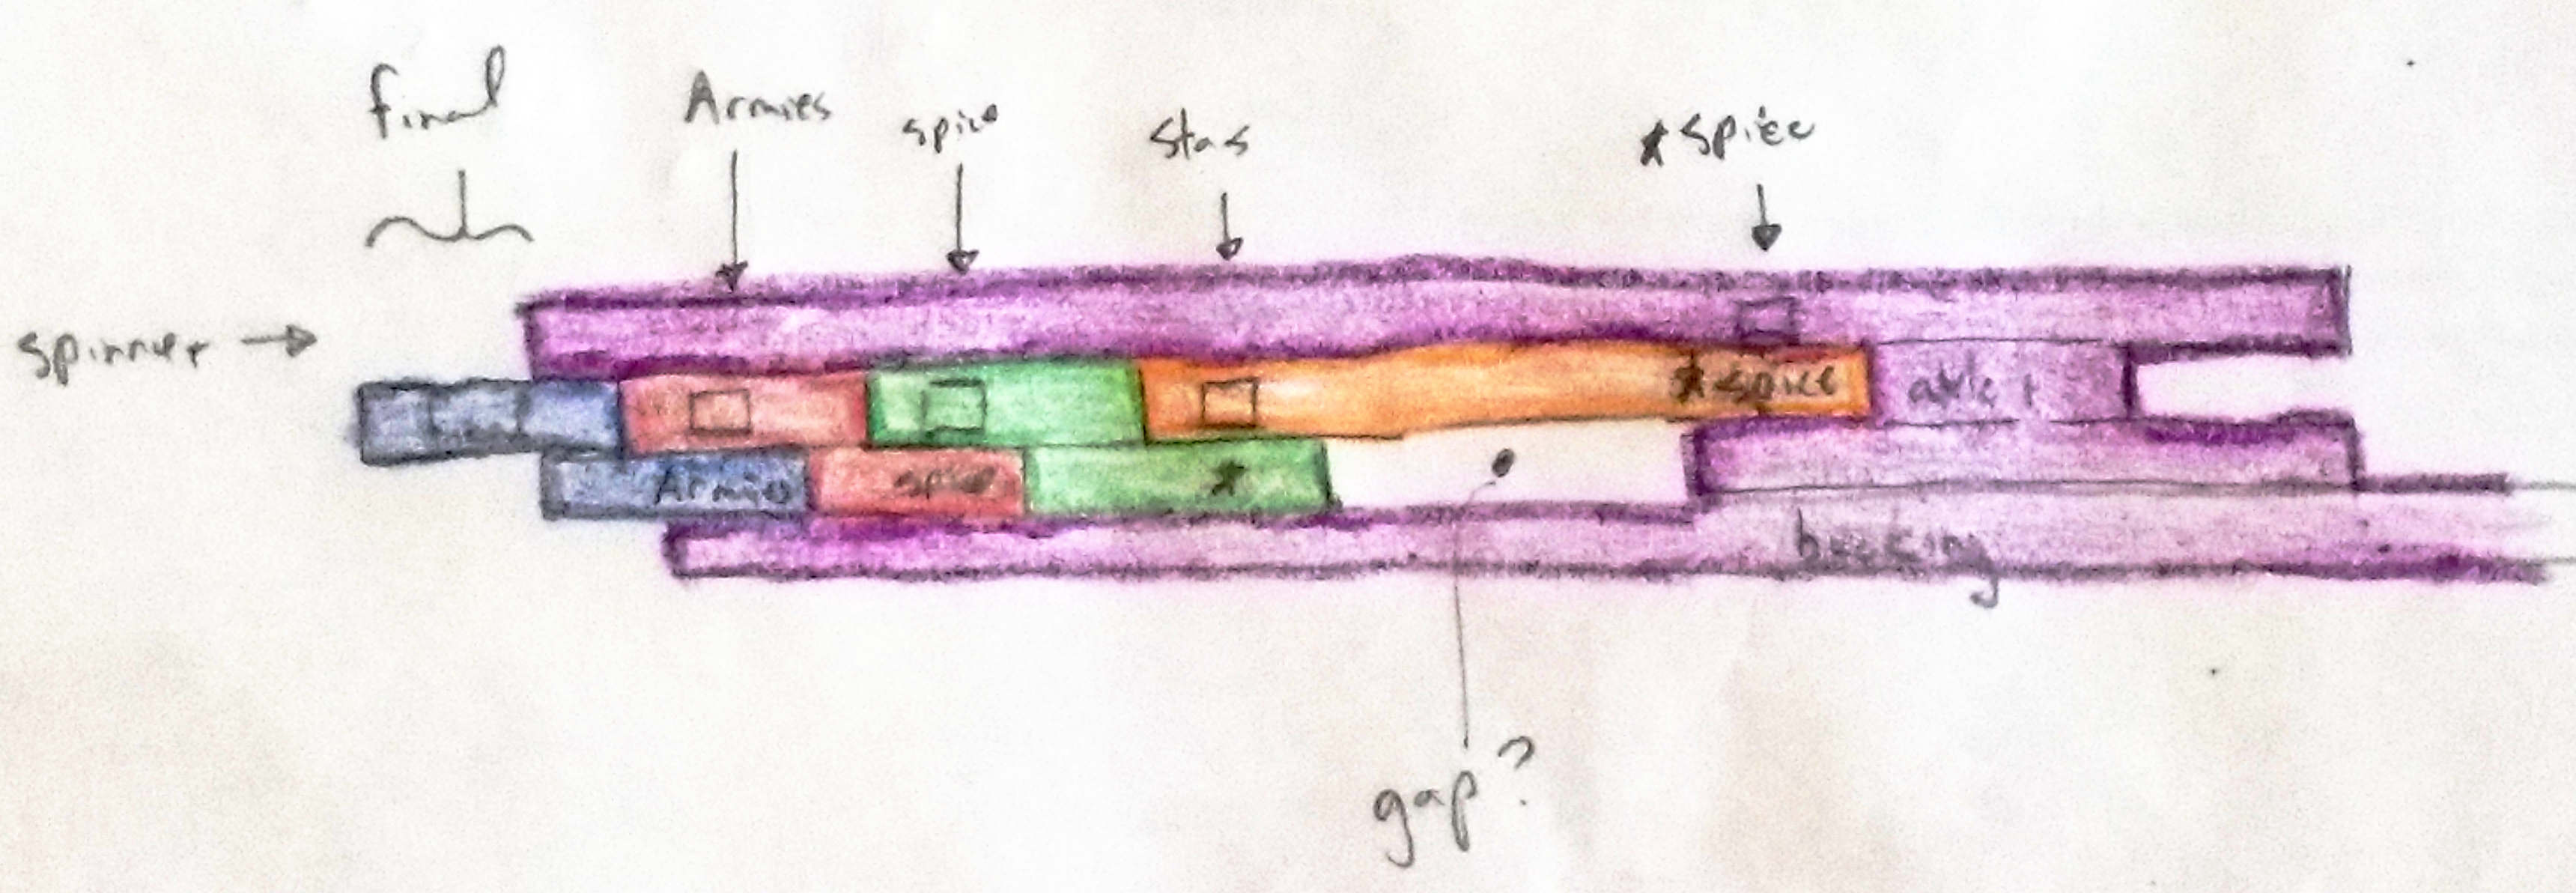 final
Armies
spice
Stars
★ spice
spinner →
★ spice
Armies
spice
★
backing
gap?